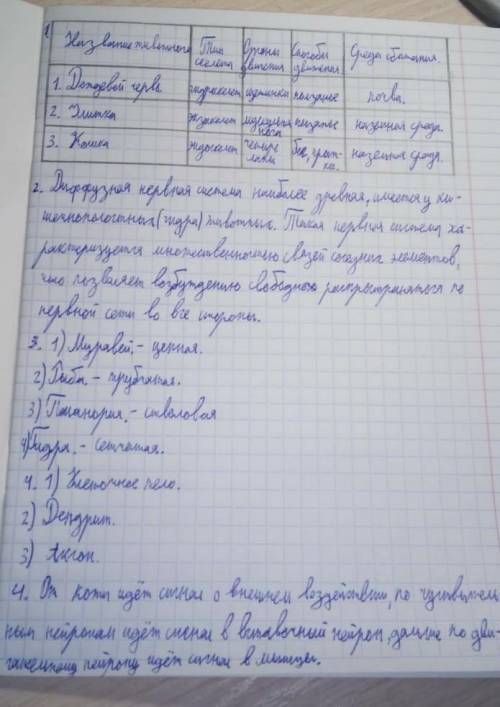 1.
Название животного Тип скелета Органы движения Способы движения Среда обитания.
1. Дождевой червь гидроскелет щетинки ползание почва.
2. Улитка экзоскелет мускульная нога ползанье наземная среда.
3. Кошка эндоскелет четыре лапы бег, прыжки. наземная среда.
2. Диффузная нервная система наиболее древняя, имеется у ки-
шечнополостных (гидра) животных. Такая нервная система ха-
рактеризуется множественностью связей соседних элементов,
что позволяет возбуждению свободно распространяться по
нервной сети во все стороны.
3. 1) Муравей, - цепная.
2) Рыба - трубчатая.
3) Планария, - стволовая
4) Гидра. - сетчатая.
4. 1) Клеточное тело.
2) Дендрит.
3) Аксон.
4. От кожи идёт сигнал о внешнем воздействии, по чувствитель
ным нейронам идёт сигнал в вставочный нейрон, дальше по дви-
гательному нейрону идёт сигнал в мышцы.